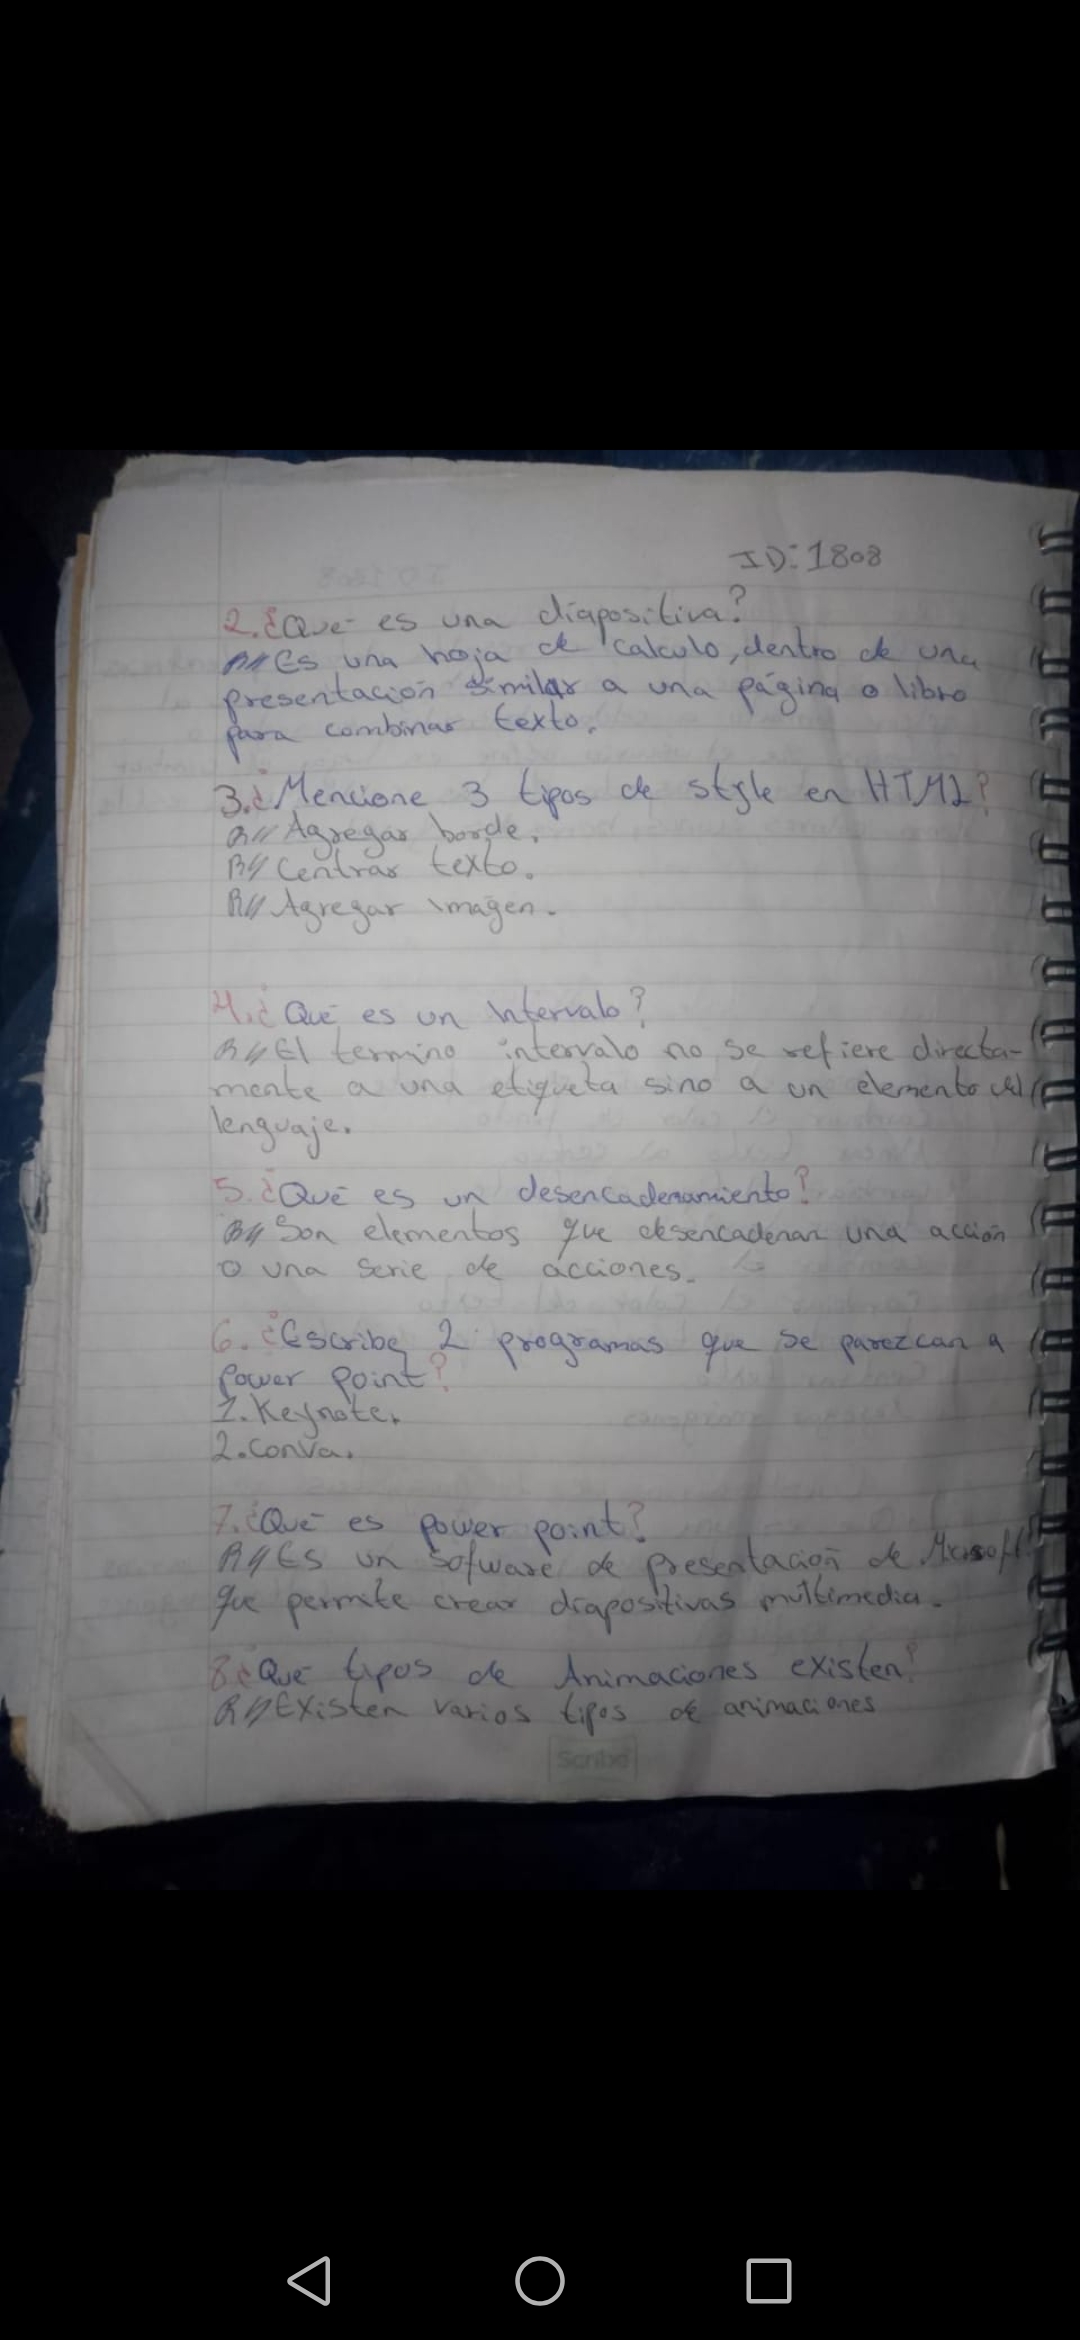 ID: 1808
2. ¿Que es una diapositiva?
R// Es una hoja de calculo, dentro de una
presentación similar a una página o libro
para combinar texto.
3. ¿Mencione 3 tipos de style en HTML?
R// Agregar borde.
R// Centrar texto.
R// Agregar imagen.
4. ¿Que es un intervalo?
R// El termino intervalo no se refiere directa-
mente a una etiqueta sino a un elemento del
lenguaje.
5. ¿Que es un desencadenamiento?
R// Son elementos que desencadenan una acción
o una serie de acciones.
6. ¿Escribe 2 programas que se parezcan a
power point?
1. Keynote.
2. Conva.
7. ¿Que es power point?
R// Es un sofware de presentación de Microsoft
que permite crear diapositivas multimedia.
8 ¿Que tipos de Animaciones existen?
R// Existen varios tipos de animaciones
Scribe